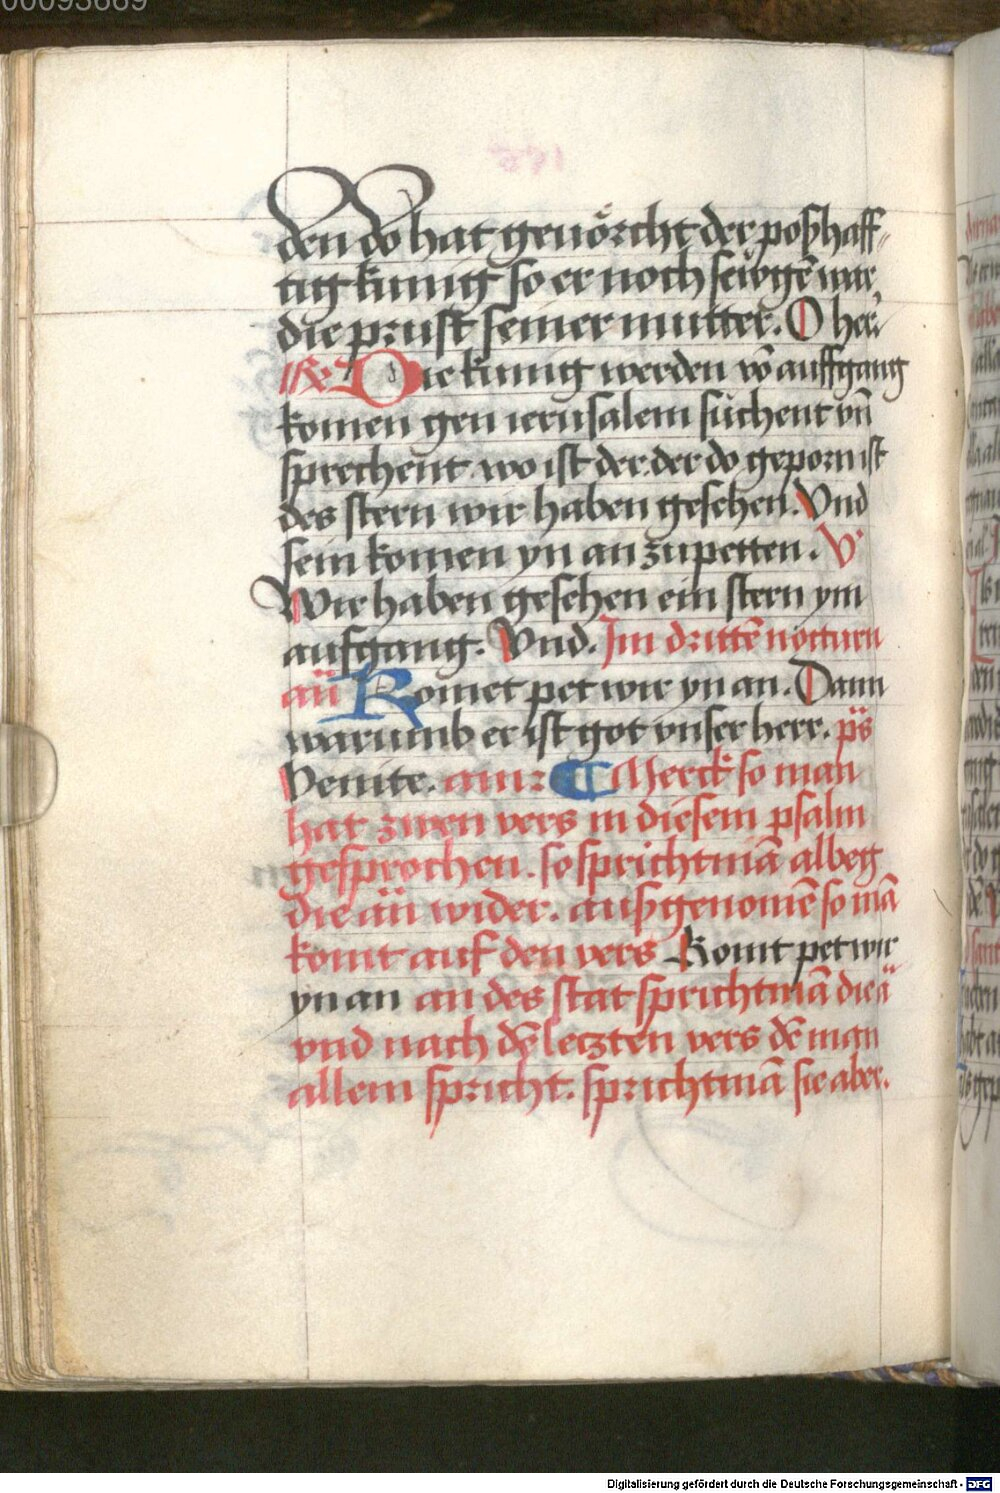 00093669
den do hat gevörcht der poßhaff-
tig kunig so er noch seưgẽ war
die prust seiner mutter. O herꝛ
℟ Die kunig werden vō auffgang
komen gen ierusalem sůchent vn̄
sprechent. wo ist der. der do geporn ist
des stern wir haben gesehen. Vnd
sein komen yn an zupetten. V̾
Wir haben gesehen ein stern ym
aufgang. Vnd. Jm drittẽ nocturn
añ Komet pet wir yn an. Dann
warumb er ist got vnser herr. ps̃
Venite. ām: ¶ Merck so man
hat zwen vers in diesem psalm
gesprochen. so spricht mā albeg
die an̄ wider. außgenomē so mā
komt auf den vers Komt pet wir
yn an an des stat spricht mā die ā
vnd nach dē leczten vers dē man
allein spricht. spricht mā sie aber.
Digitalisierung gefördert durch die Deutsche Forschungsgemeinschaft - DFG